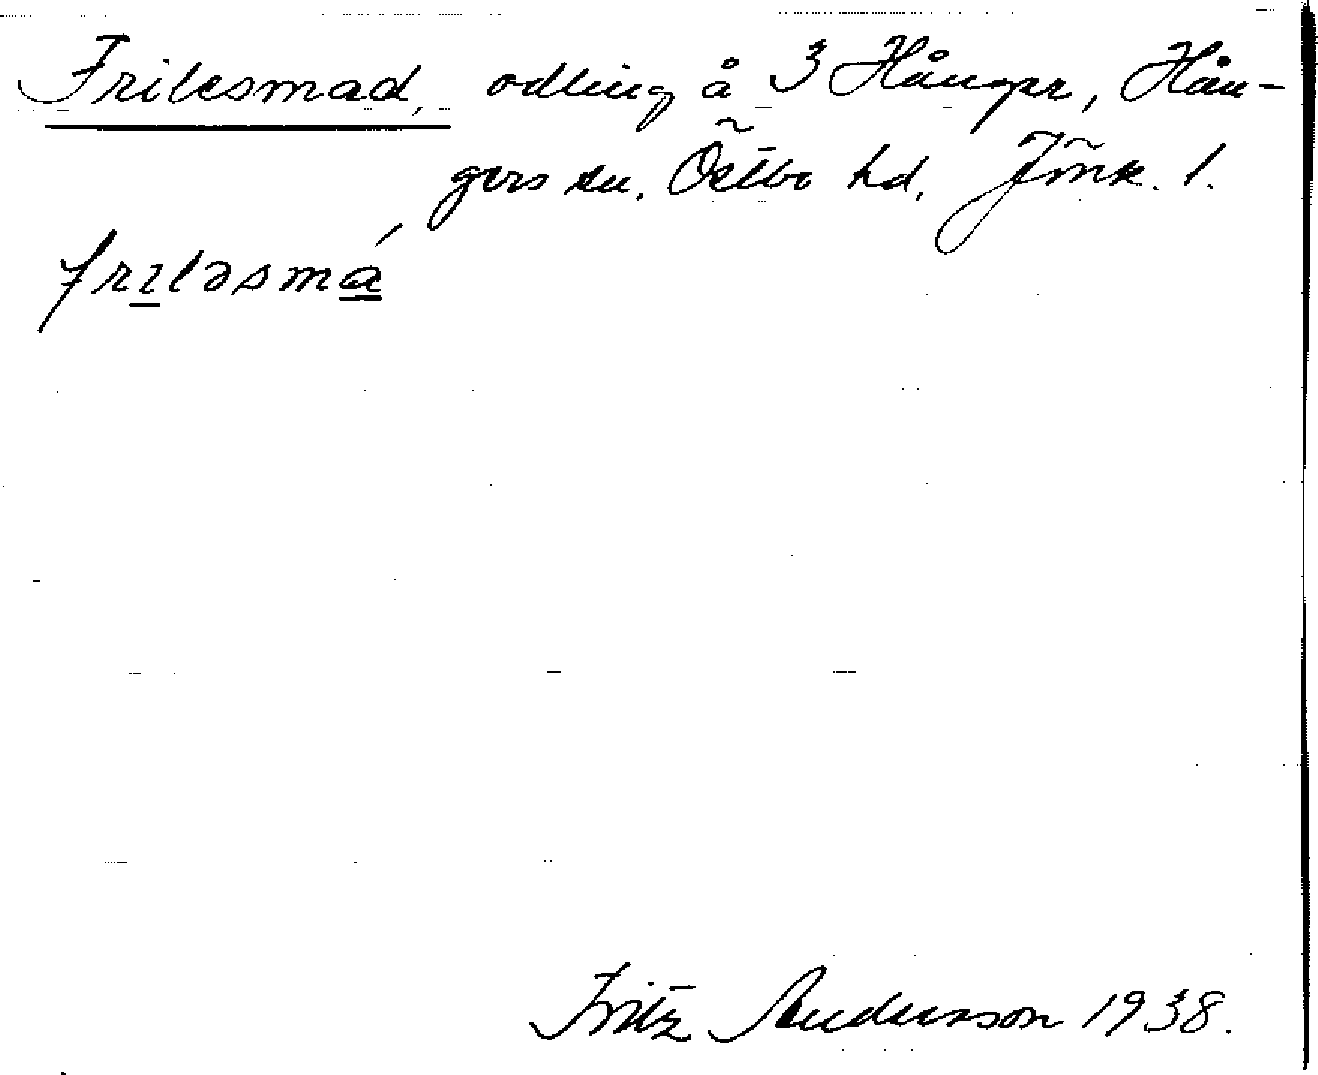 Frilesmad, odling å 3 Hånger, Hån-
gers sn. Östbo hd. Jönk. l.
frıləsmá
Fritz Andersson 1938.